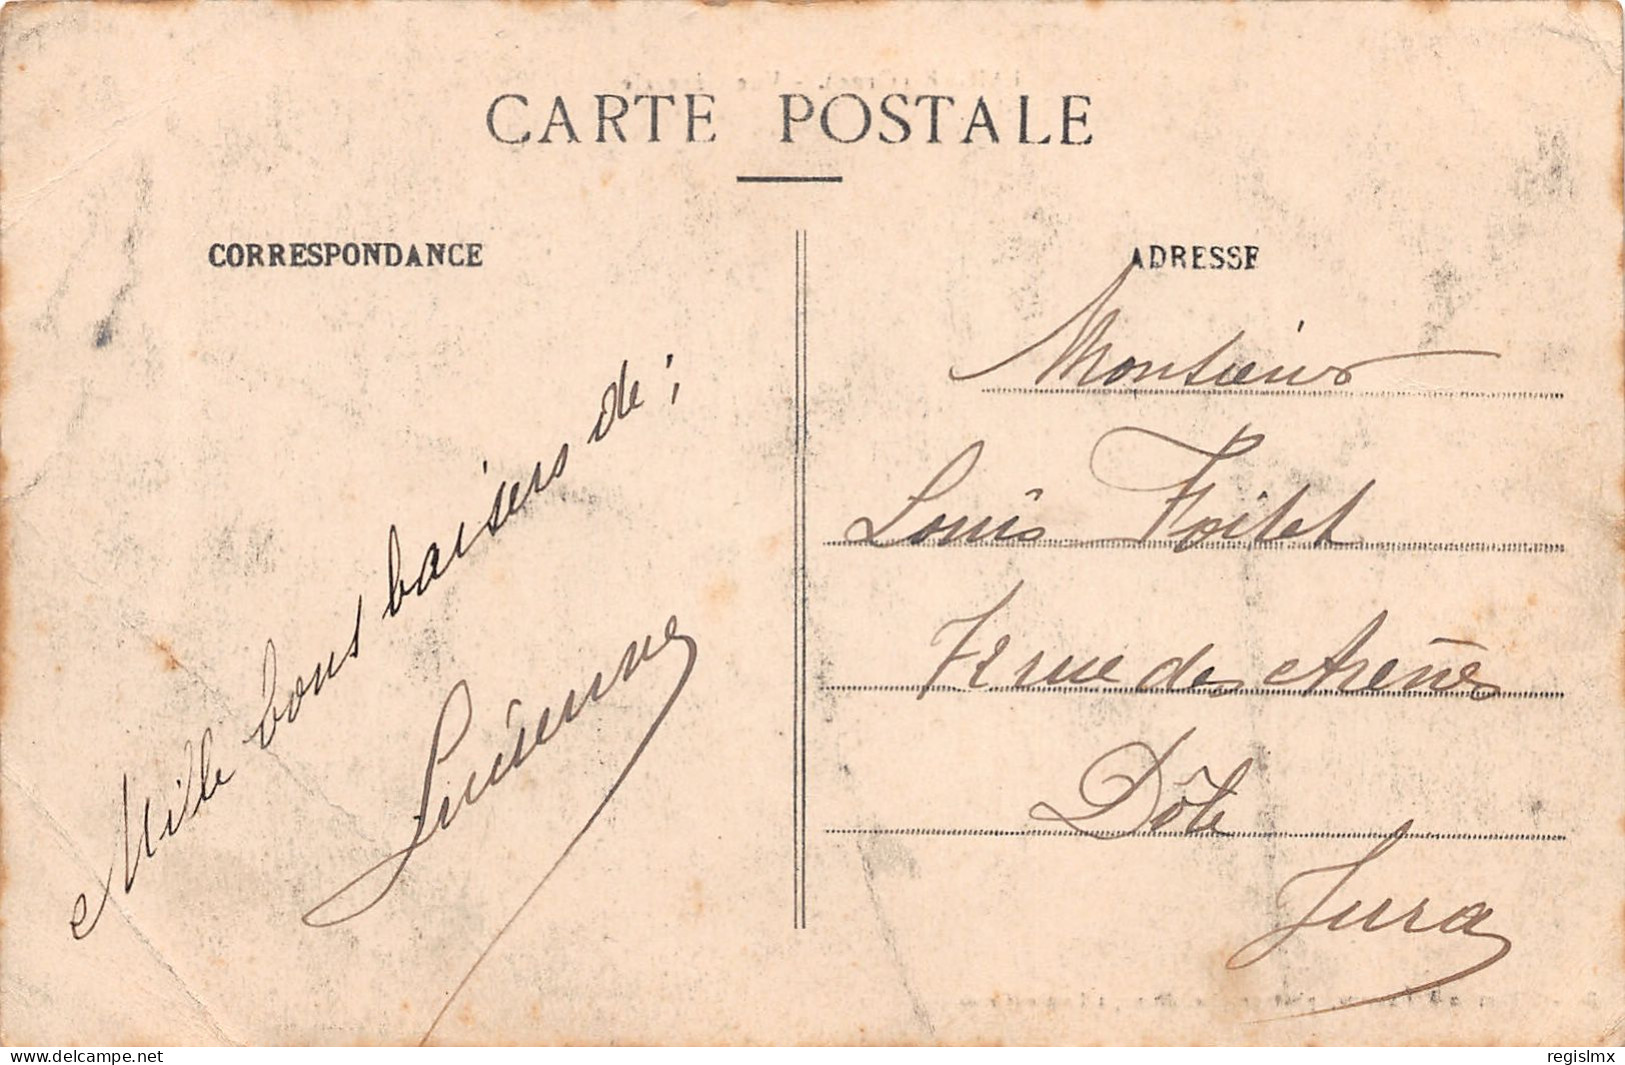 CARTE POSTALE
CORRESPONDANCE
Mille bons baisers de ;
ADRESSE
Monsieur
Louis
rue des Arènes
Dôle
Jura
delcampe.net
regislmx